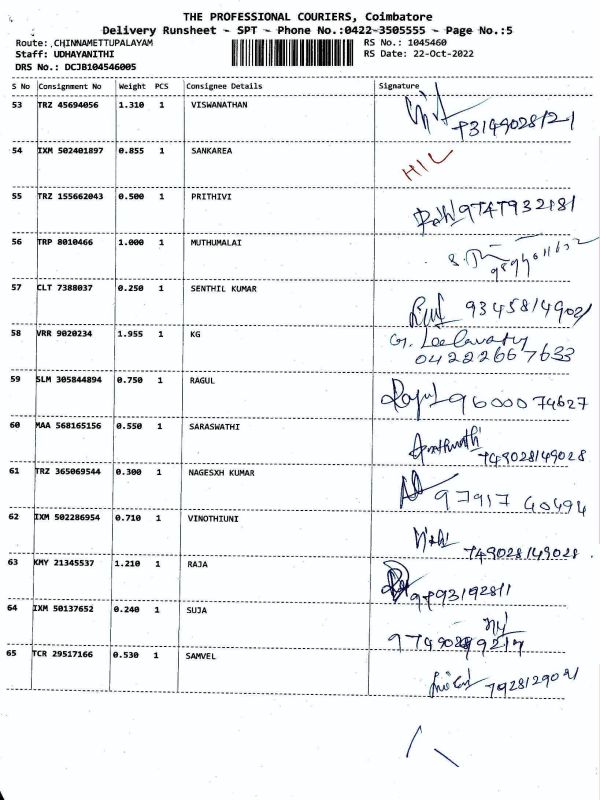 THE PROFESSIONAL COURIERS, Coimbatore
Delivery Runsheet - SPT - Phone No.:0422-3505555 - Page No.:5
Route: CHINNAMETTUPALAYAM RS No.: 1045460
Staff: UDHAYANITHI RS Date: 22-Oct-2022
DRS No.: DCJB104546005
S No Consignment No Weight PCS Consignee Details Signature
53 TRZ 45694056 1.310 1 VISWANATHAN
54 IXM 502401897 0.855 1 SANKAREA HIL
55 TRZ 155662043 0.500 1 PRITHIVI 9747932181
56 TRP 8010466 1.000 1 MUTHUMALAI
57 CLT 7388037 0.250 1 SENTHIL KUMAR
58 VRR 9020234 1.955 1 KG G. Leelavathy
04222667633
59 SLM 305844894 0.750 1 RAGUL Ragul 9600074627
60 MAA 568165156 0.550 1 SARASWATHI
749028149028
61 TRZ 365069544 0.300 1 NAGESXH KUMAR 9791740494
62 IXM 502286954 0.710 1 VINOTHIUNI
749028149028
63 KMY 21345537 1.210 1 RAJA
64 IXM 50137652 0.240 1 SUJA
65 TCR 29517166 0.530 1 SAMVEL